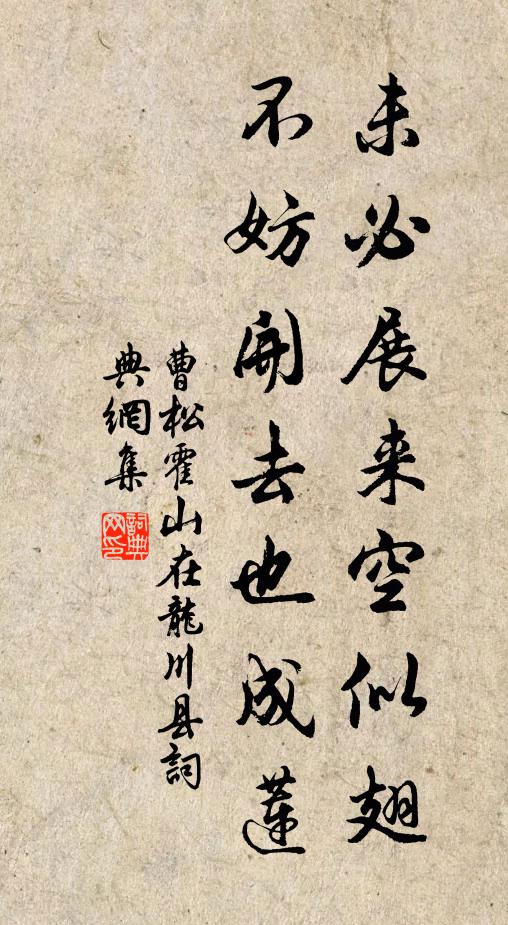 未必展来空似翅
不妨開去也成蓮
曹松霍山在龍川县詞
典網集
詞典
网印